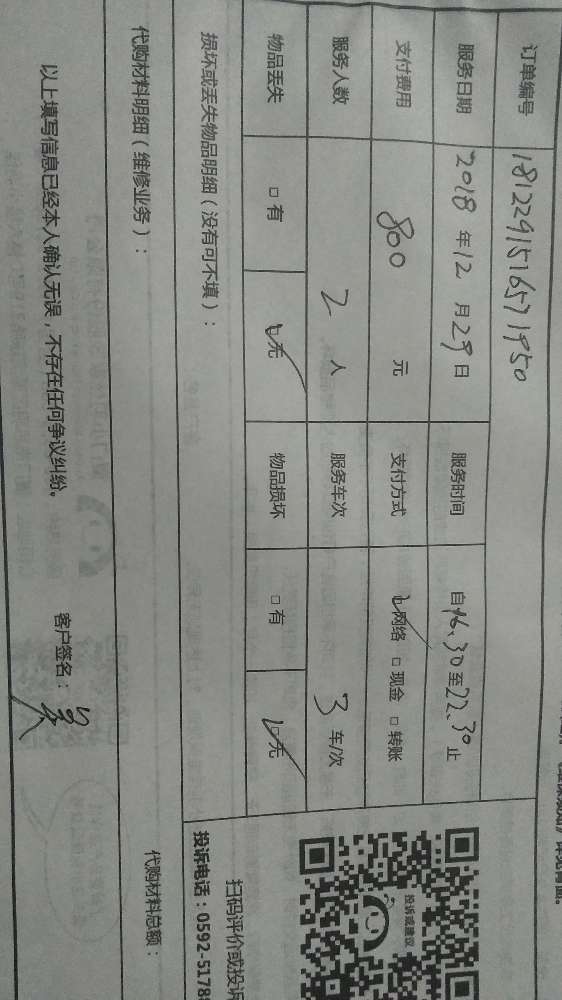 订单编号 1812291516571950
服务日期 2018 年 12 月 29 日 服务时间 自 16.30 至 22.30 止
支付费用 800 元 支付方式 ☑网络 □现金 □转账
服务人数 2 人 服务车次 3 车/次
物品丢失 □有 ☑无 物品损坏 □有 ☑无
损坏或丢失物品明细(没有可不填):
代购材料明细(维修业务): 代购材料总额:
以上填写信息已经本人确认无误,不存在任何争议纠纷。 客户签名:
投诉或建议
扫码评价或投诉
投诉电话:0592-5178